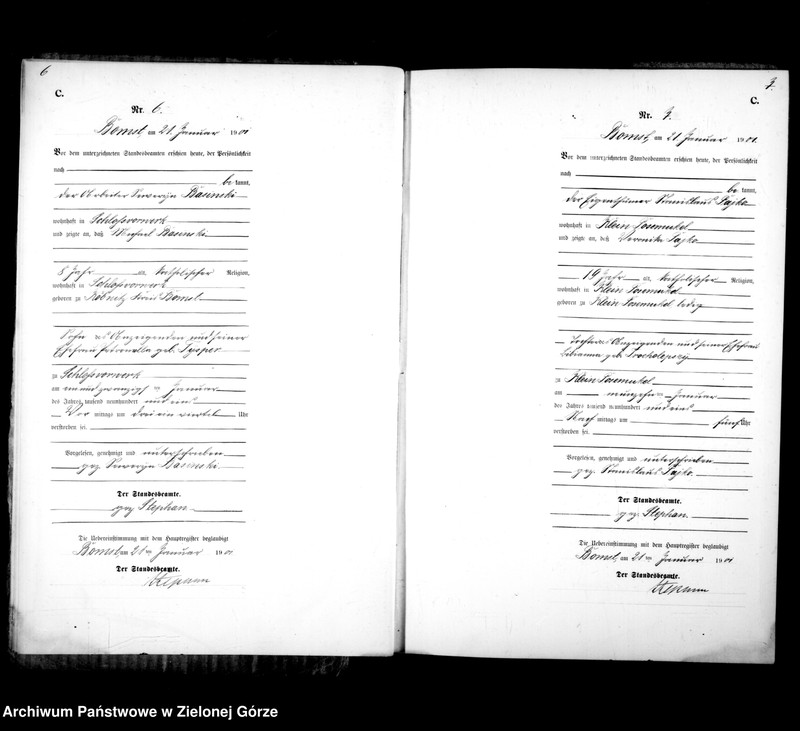 6
C.
Nr. 6.
Bomst, am 21. Januar 1901
Vor dem unterzeichneten Standesbeamten erschien heute, der Persönlichkeit
nach
be kannt,
der Arbeiter Severyn Basinski
wohnhaft in Schlossvorwerk
und zeigte an, daß Michael Basinski
8 Jahr alt, katholischer Religion,
wohnhaft in Schlossvorwerk
geboren zu Köbnitz Kreis Bomst
Sohn des Anzeigenden und seiner
Ehefrau Petronella geb.
zu Schlossvorwerk
am ein und zwanzigsten Januar
des Jahres tausend neunhundert und eins
Vor mittags um drei ein viertel Uhr
verstorben sei.
Vorgelesen, genehmigt und unterschrieben
gez. Severyn Basinski
Der Standesbeamte.
gez. Stephan
Die Uebereinstimmung mit dem Hauptregister beglaubigt
Bomst, am 21ten Januar 1901
Der Standesbeamte.
Stephan
7.
C.
Nr. 7.
Bomst, am 21 Januar 1901.
Vor dem unterzeichneten Standesbeamten erschien heute, der Persönlichkeit
nach
be kannt,
der Eigenthümer Stanislaus Pajko
wohnhaft in Klein Posemukel
und zeigte an, daß Veronika Pajko
19 Jahr alt, katholischer Religion,
wohnhaft in Klein Posemukel
geboren zu Klein Posemukel ledig
Tochter des Anzeigenden und seiner Ehefrau
geb.
zu Klein Posemukel
am neunzehnten Januar
des Jahres tausend neunhundert und eins
Nach mittags um fünf Uhr
verstorben sei.
Vorgelesen, genehmigt und unterschrieben
gez. Stanislaus Pajko.
Der Standesbeamte.
gez. Stephan.
Die Uebereinstimmung mit dem Hauptregister beglaubigt
Bomst, am 21ten Januar 1901
Der Standesbeamte.
Stephan
Archiwum Państwowe w Zielonej Górze